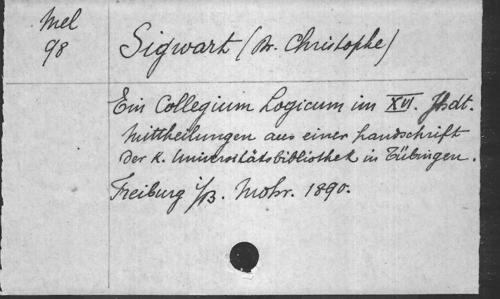 Mel
98
Sigwart (Dr. Christophe)
Ein Collegium Logicum im XVI. Jhdt.
Mittheilungen aus einer Handschrift
der K. Universitätsbibliothek in Tübingen.
Freiburg i/B. Mohr. 1890.